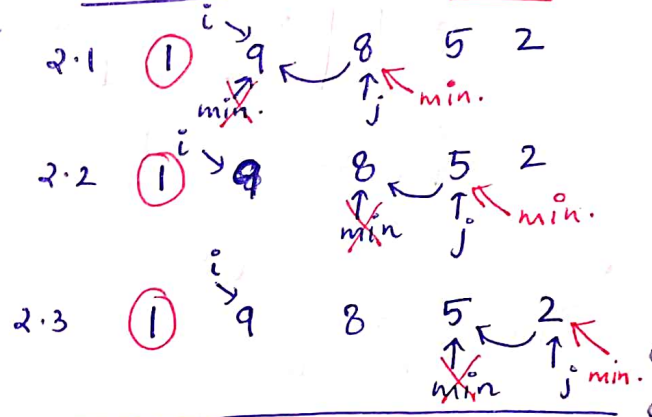 i
2.1 1 9 8 5 2
min. j min.
i
2.2 1 9 8 5 2
min j min.
i
2.3 1 9 8 5 2
min j min.